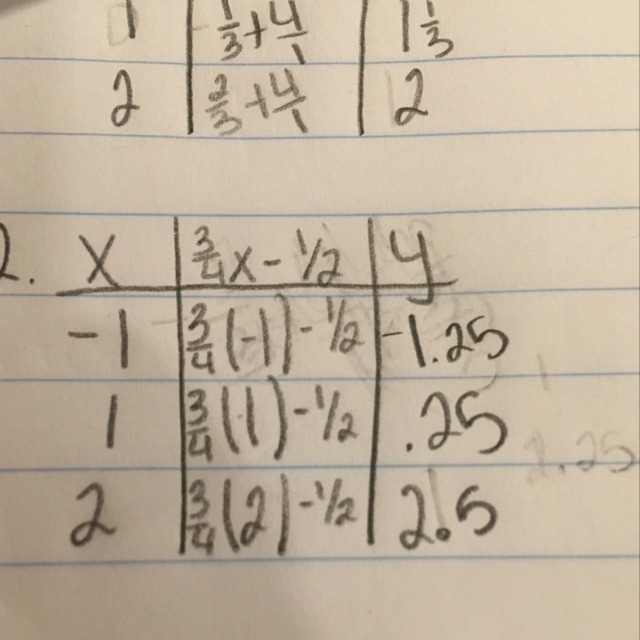 1 | -1/3+4/1 | 1 1/3
2 | 2/3+4/1 | 2
2. X | 3/4x-1/2 | y
-1 | 3/4(-1)-1/2 | -1.25
1 | 3/4(1)-1/2 | .25
2 | 3/4(2)-1/2 | 2.5